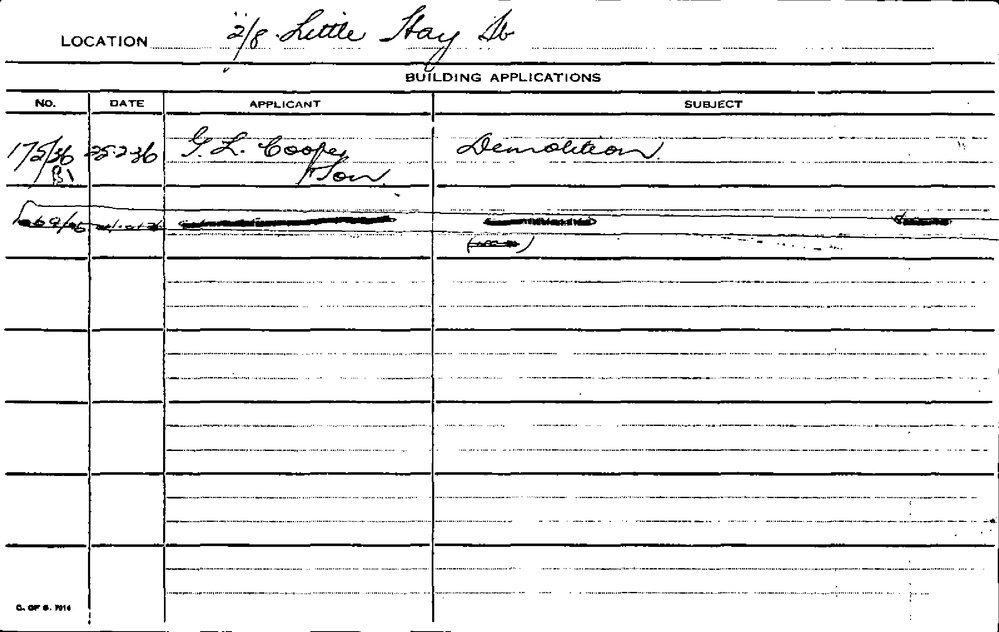 LOCATION 2/8 Little Hay St
BUILDING APPLICATIONS
NO. DATE APPLICANT SUBJECT
175/36 25·2·36 G. L. Cooper Demolition
B1 & Son
C. OF S. 7014